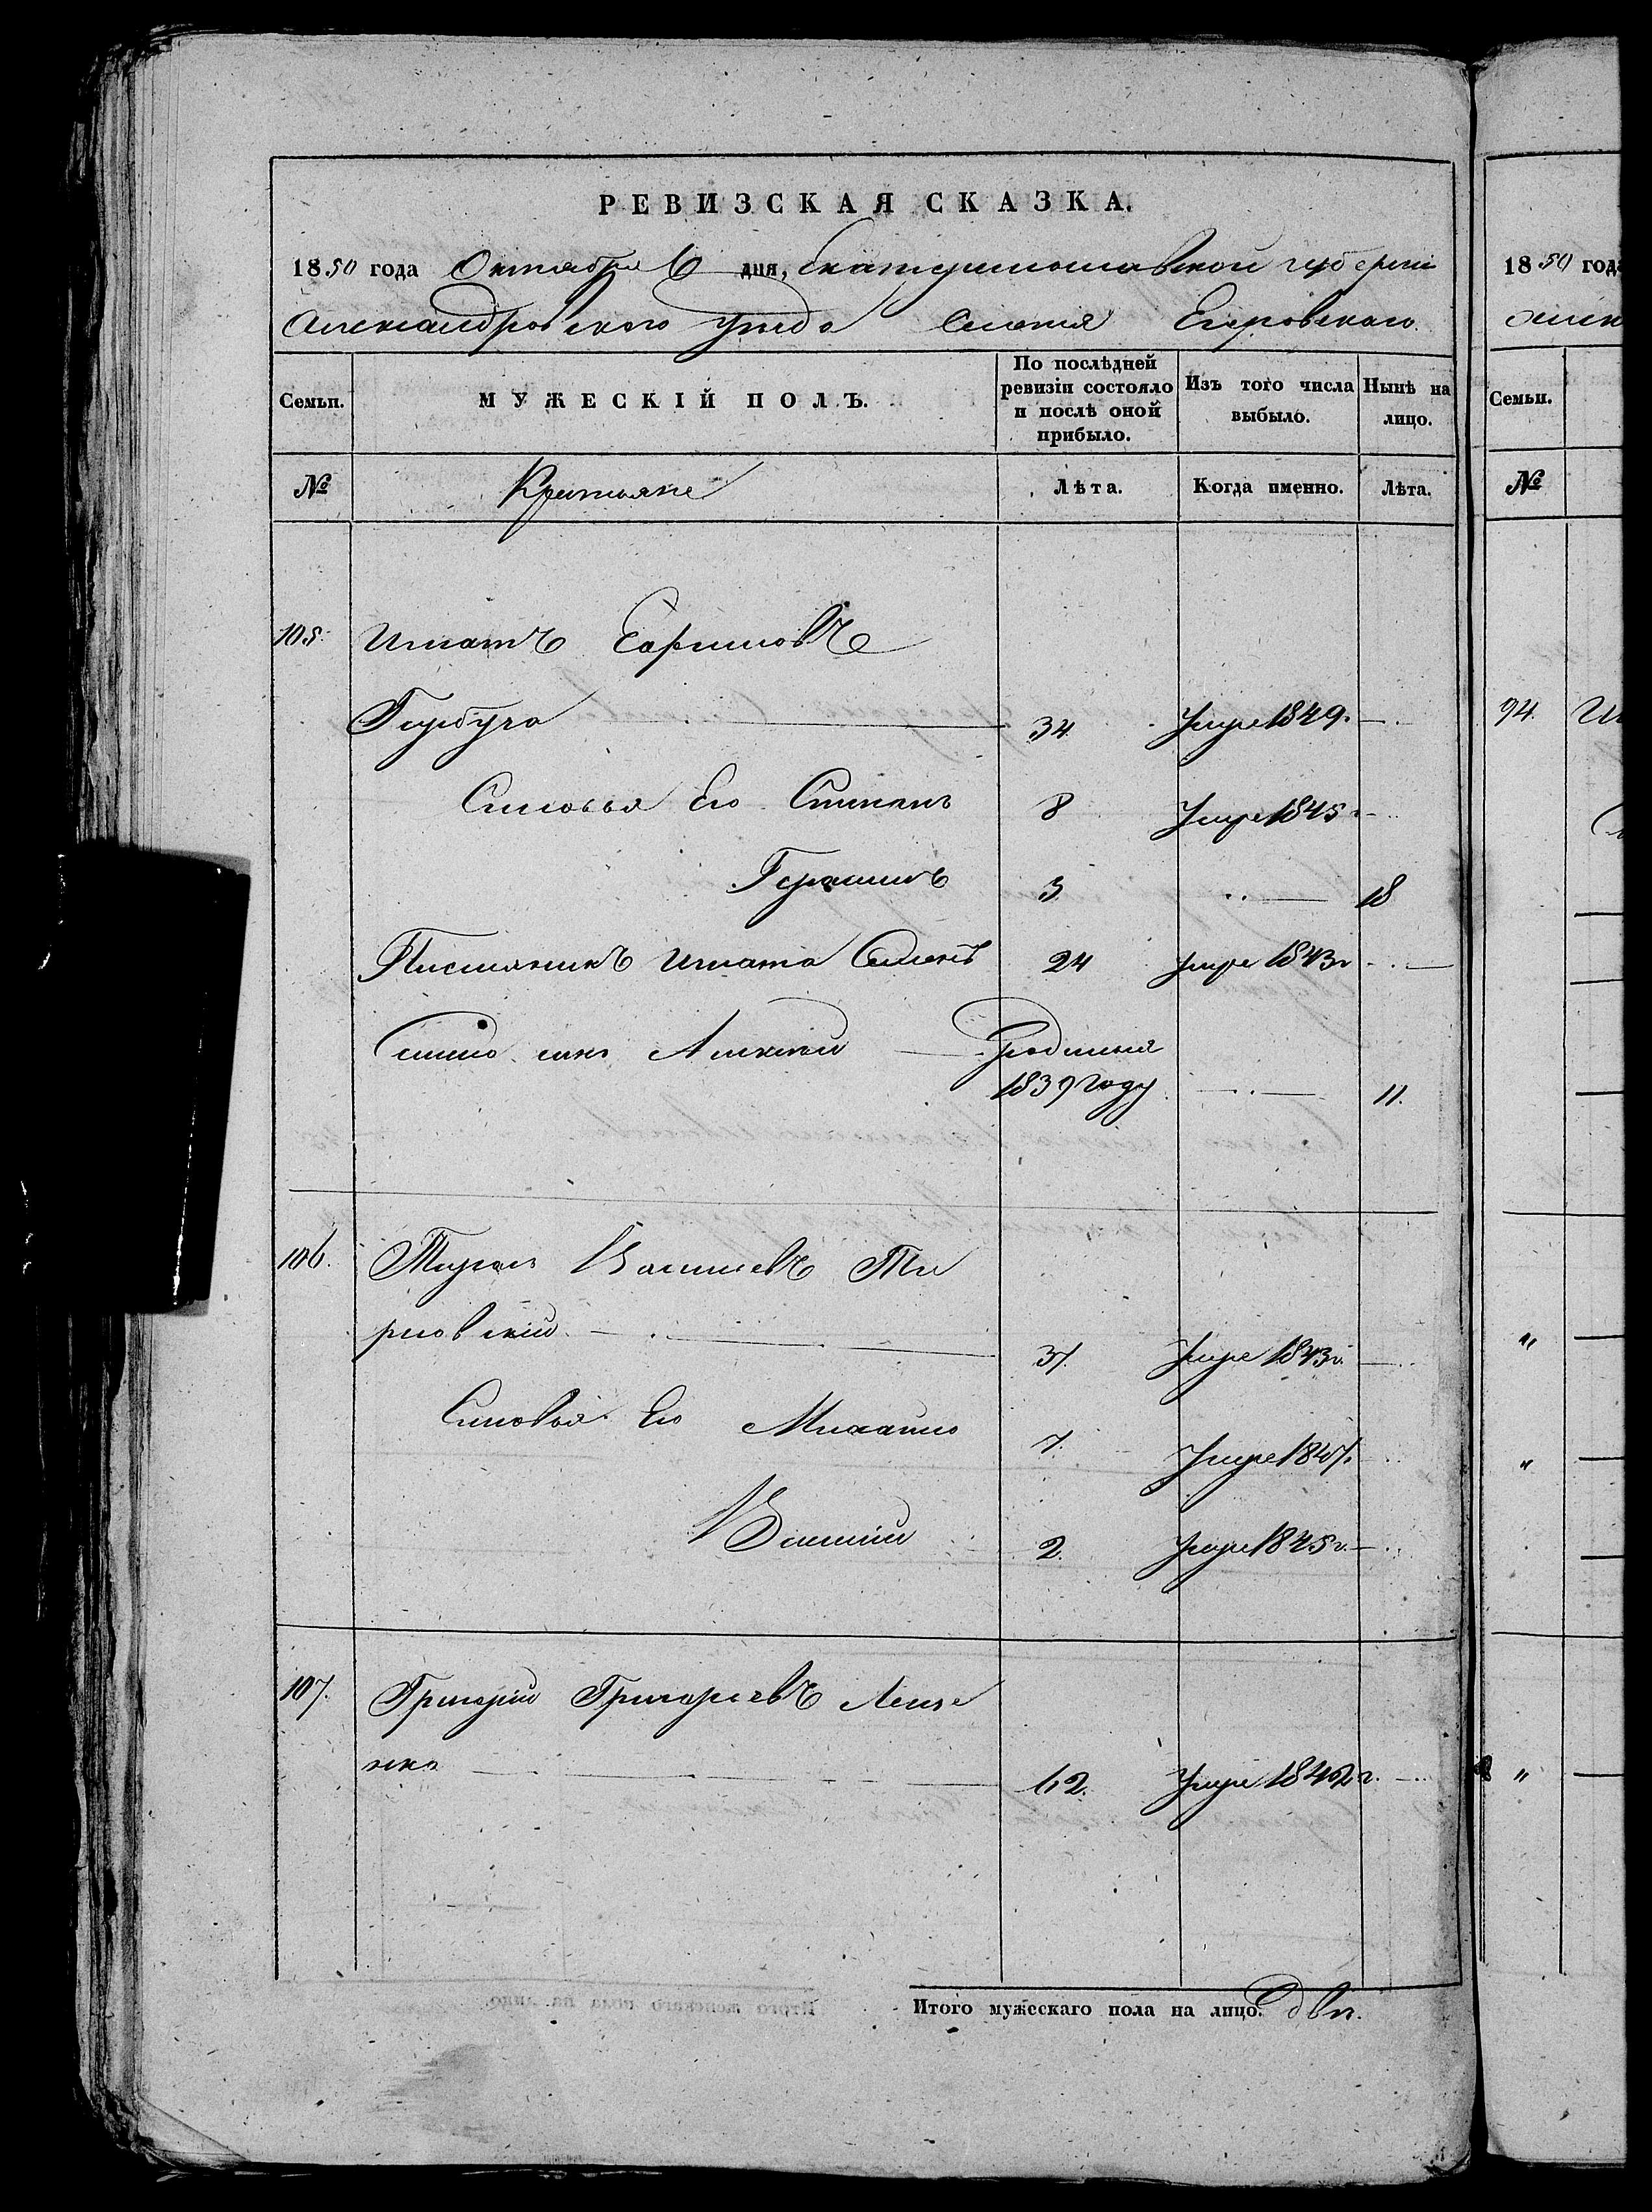 РЕВИЗСКАЯ СКАЗКА.
1850 года Октября 6 дня, Екатеринославской губернии
Александровского уезда Селения Егоровскаго.
Семьи. МУЖЕСКІЙ ПОЛЪ. По послѣдней ревизіи состояло и послѣ оной прибыло. Изъ того числа выбыло. Нынѣ на лицо.
№ Крестьяне Лѣта. Когда именно. Лѣта.
105. Игнатъ Ефимовъ
34 Умре 1849. —
Сыновья Его Степанъ 8 Умре 1845 —
Герасимъ 3 — 18
Племяникъ Игната Семенъ 24 Умре 1843г —
Семена сынъ Алексей Рождения
1839 году — 11.
106. Василиевъ
37. Умре 1843г. —
Сыновья Его Михайло 7. Умре 1847.
Василий 2. Умре 1845г. —
107. Григорий Григориевъ
62. Умре 1842г. —
Итого мужескаго пола на лицо. два.
1850 года
Семьи.
№
94.
"
"
"